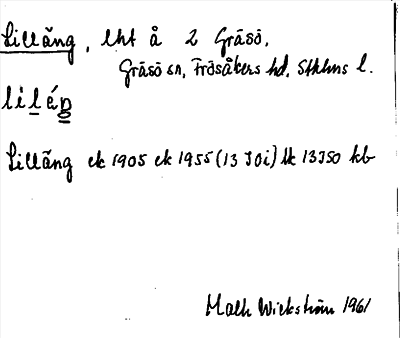 Lilläng, lht å 2 Gräsö,
Gräsö sn, Frösåkers hd, Sthlms l.
liläŋ
Lilläng ek 1905 ek 1955 (13 I 0i) tk 13I50 kb
Wickström 1961